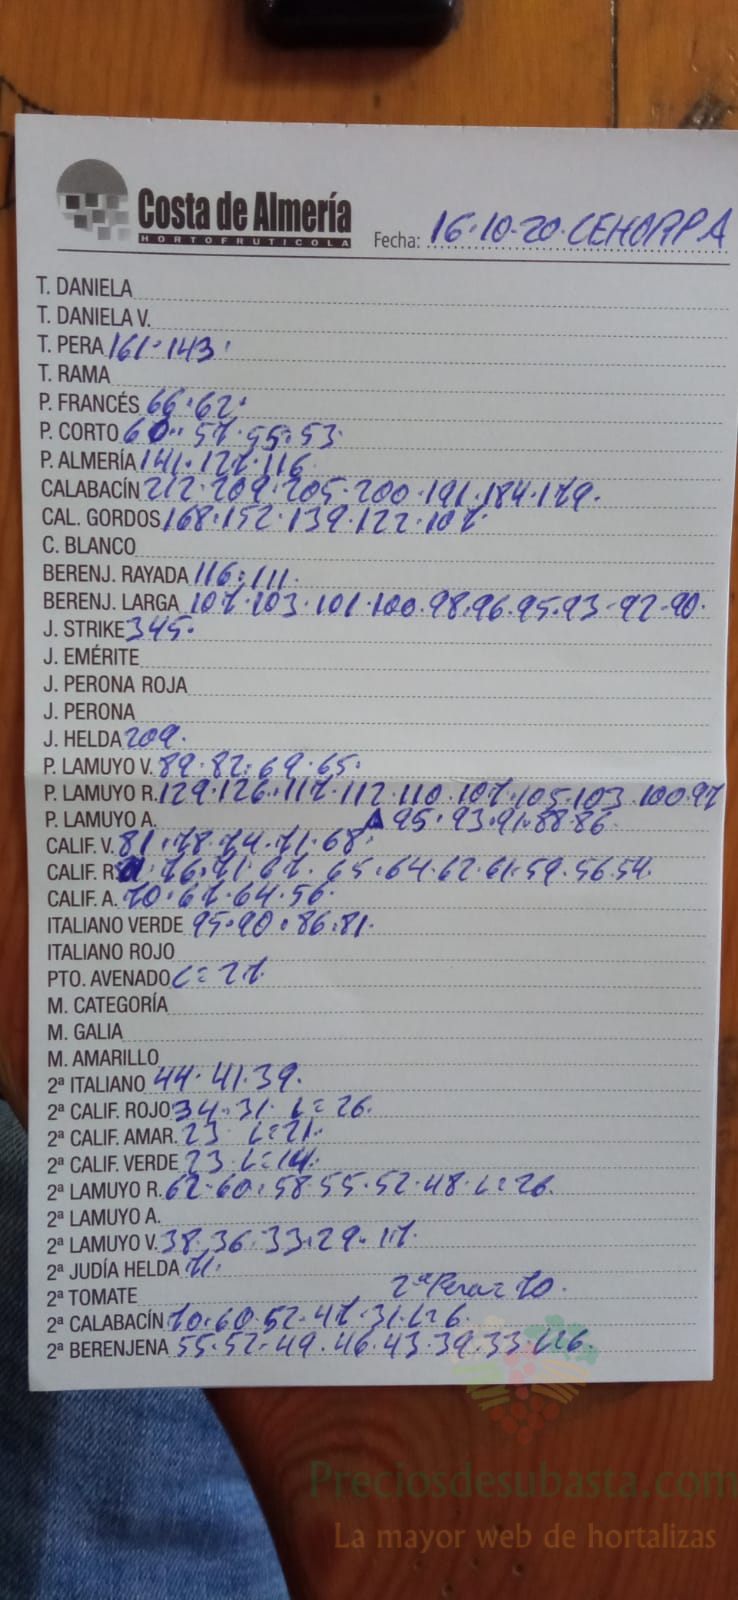 Costa de Almería
HORTOFRUTICOLA
Fecha: 16-10-20. CEHORPA
T. DANIELA
T. DANIELA V.
T. PERA 161·143·
T. RAMA
P. FRANCÉS 66·62·
P. CORTO 60·57·55·53·
P. ALMERÍA 141·127·116
CALABACÍN 212·209·205·200·191·184·179·
CAL. GORDOS 168·152·139·122·107·
C. BLANCO
BERENJ. RAYADA 116·111·
BERENJ. LARGA 107·103·101·100·98·96·95·93·92·90·
J. STRIKE 345·
J. EMÉRITE
J. PERONA ROJA
J. PERONA
J. HELDA 209·
P. LAMUYO V. 89·82·69·65·
P. LAMUYO R. 129·126·117·112·110·107·105·103·100·97
P. LAMUYO A. 95·93·91·88·86·
CALIF. V. 81·78·74·71·68·
CALIF. R. 76·71·67·65·64·62·61·59·56·54·
CALIF. A. 70·67·64·56·
ITALIANO VERDE 95·90·86·81·
ITALIANO ROJO
PTO. AVENADO L=27·
M. CATEGORÍA
M. GALIA
M. AMARILLO
2ª ITALIANO 44·41·39·
2ª CALIF. ROJO 34·31· L=26·
2ª CALIF. AMAR. 23 L=21·
2ª CALIF. VERDE 23 L=14·
2ª LAMUYO R. 62·60·58·55·52·48·L=26·
2ª LAMUYO A.
2ª LAMUYO V. 38·36·33·29·17·
2ª JUDÍA HELDA 71·
2ª TOMATE 2ª Pera=70·
2ª CALABACÍN 70·60·52·47·31·L=6·
2ª BERENJENA 55·52·49·46·43·39·33·L=6·
Preciosdesubasta.com
La mayor web de hortalizas